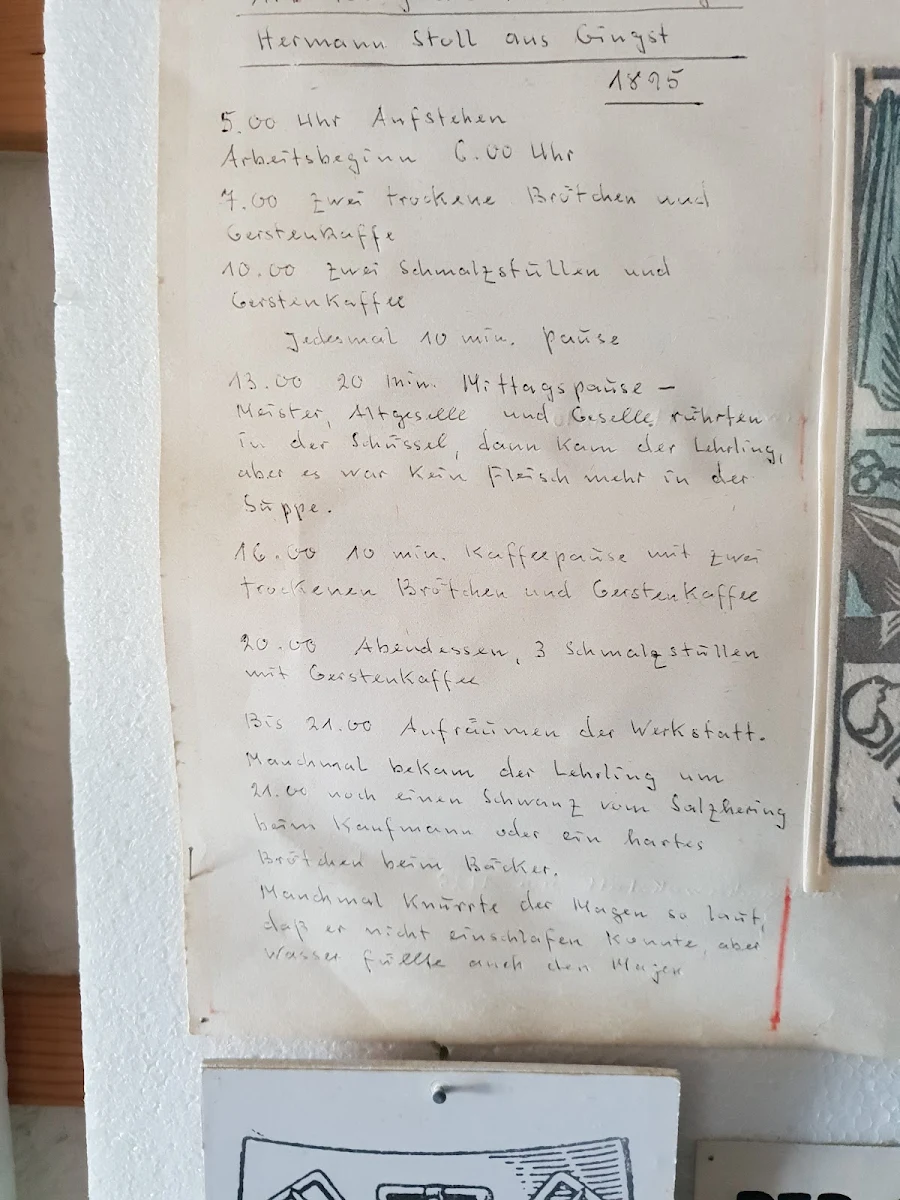 Hermann Stoll aus Gingst
1895
5.00 Uhr Aufstehen
Arbeitsbeginn 6.00 Uhr
7.00 zwei trockene Brötchen und
Gerstenkaffe
10.00 zwei Schmalzstullen und
Gerstenkaffee
Jedesmal 10 min. Pause
13.00 20 min. Mittagspause –
Meister, Altgeselle und Geselle rührten
in der Schüssel, dann kam der Lehrling,
aber es war kein Fleisch mehr in der
Suppe.
16.00 10 min. Kaffeepause mit zwei
trockenen Brötchen und Gerstenkaffee
20.00 Abendessen, 3 Schmalzstullen
mit Gerstenkaffee
Bis 21.00 Aufräumen der Werkstatt.
Manchmal bekam der Lehrling um
21.00 noch einen Schwanz vom Salzhering
beim Kaufmann oder ein hartes
Brötchen beim Bäcker.
Manchmal knurrte der Magen so laut,
daß er nicht einschlafen konnte, aber
Wasser füllte auch den Magen